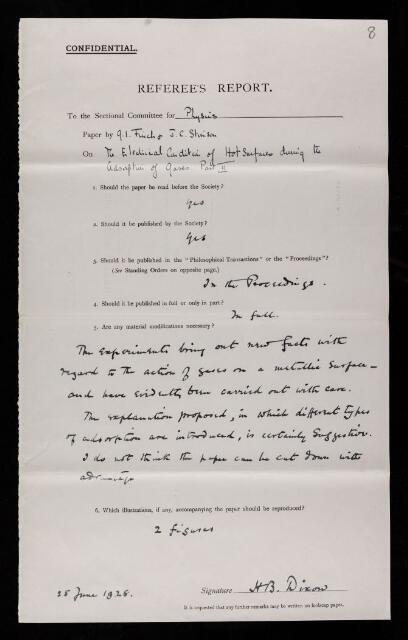 8
CONFIDENTIAL.
REFEREE'S REPORT.
To the Sectional Committee for Physics
Paper by G. I. Finch & J. C. Stimson
On The Electrical Condition of Hot Surfaces during the
adsorption of Gases Part II
1. Should the paper be read before the Society?
yes
2. Should it be published by the Society?
yes
3. Should it be published in the "Philosophical Transactions" or the "Proceedings"?
(See Standing Orders on opposite page.)
In the Proceedings.
4. Should it be published in full or only in part?
In full.
5. Are any material modifications necessary?
The experiments bring out new facts with
regard to the action of gases on a metallic surface –
and have evidently been carried out with care.
The explanation proposed, in which different types
of adsorption are introduced, is certainly suggestive.
I do not think the paper can be cut down with
advantage
6. Which illustrations, if any, accompanying the paper should be reproduced?
2 figures
28 June 1928. Signature H B. Dixon
It is requested that any further remarks may be written on foolscap paper.